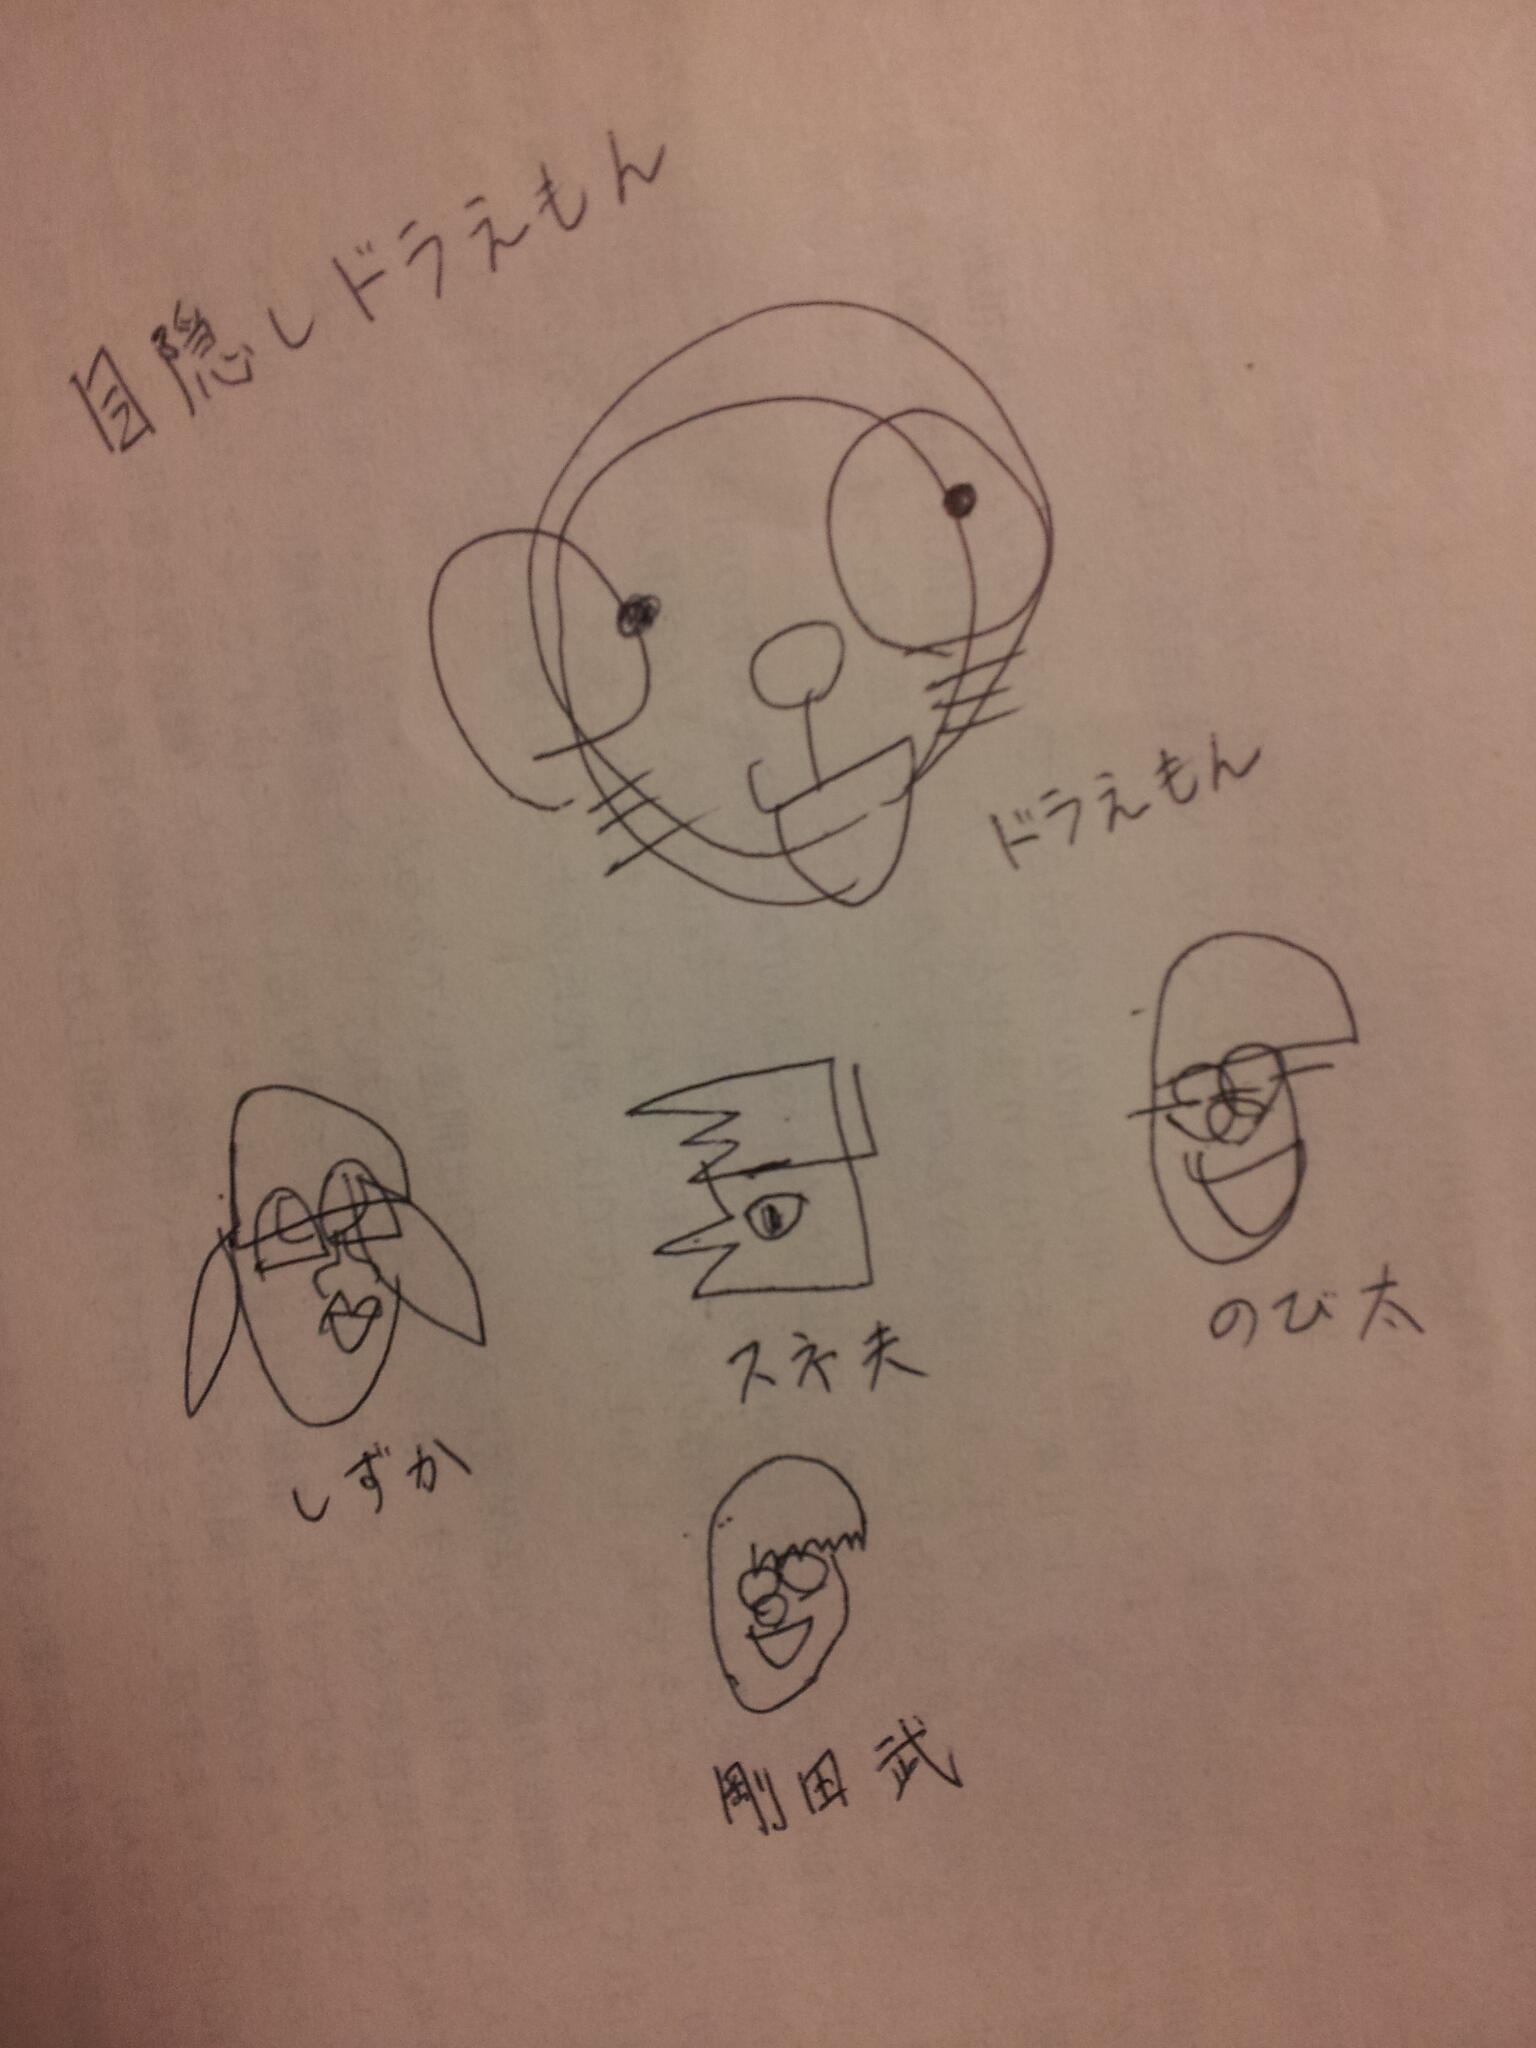 目隠しドラえもん
ドラえもん
しずか
スネ夫
のび太
剛田武